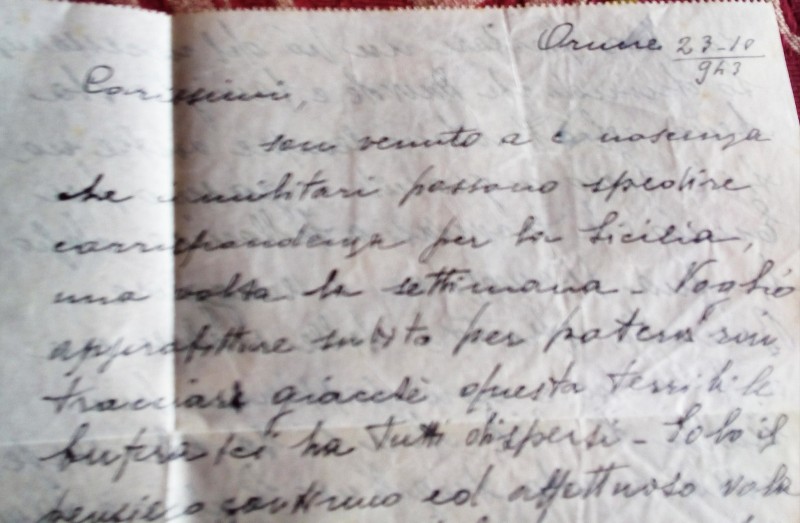 Orune 23-10
943
Carissimi,
son venuto a conoscenza
che i militari possono spedire
corrispondenza per la Sicilia,
una volta la settimana - Voglio
approfittare subito per potervi rin
tracciare giacchè questa terribile
bufera ci ha tutti dispersi - Solo il
pensiero continuo ed affettuoso vola